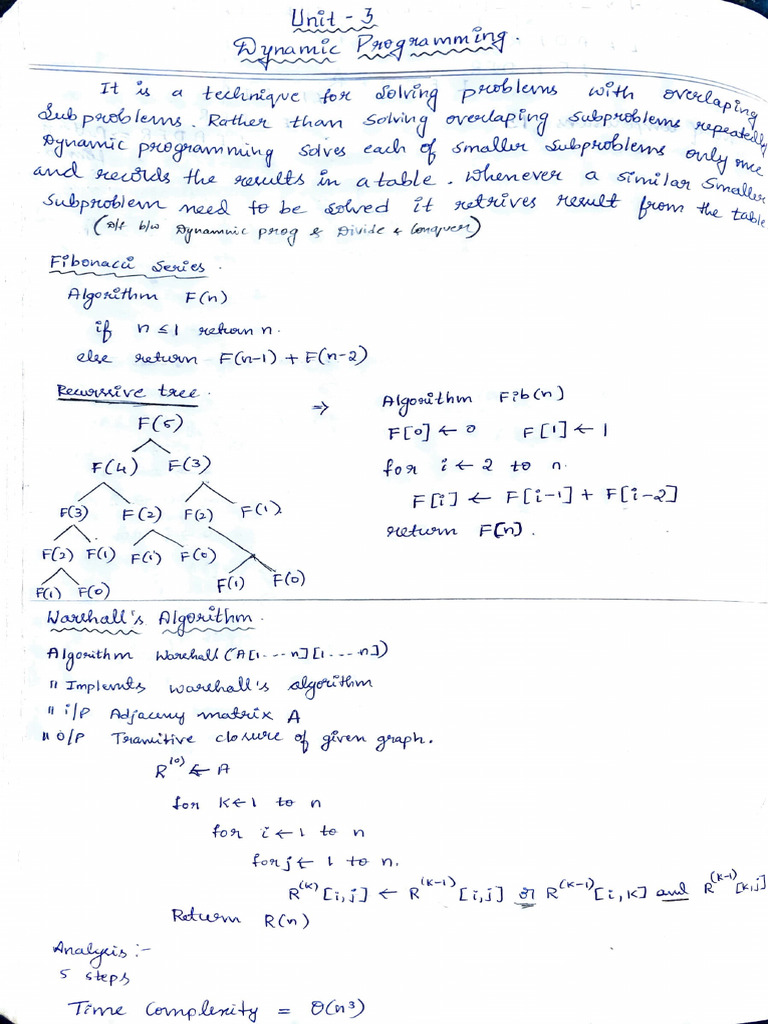 Unit - 3
Dynamic Programming.
It is a technique for solving problems with overlaping
Subproblems. Rather than solving overlaping subproblems repeatedly
Dynamic programming solves each of smaller subproblems only once
and records the results in a table. Whenever a similar smaller
Subproblem need to be solved it retrives result from the table
(D/f b/w Dynamnic prog & Divide & Conquer)
Fibonacci Series.
Algorithm F(n)
if n ≤ 1 return n.
else return F(n-1) + F(n-2)
Recurssive tree.
F(5)
F(4) F(3)
F(3) F(2) F(2) F(1)
F(2) F(1) F(1) F(0)
F(1) F(0) F(1) F(0)
⇒ Algorithm Fib(n)
F[0] ← 0 F[1] ← 1
for i ← 2 to n.
F[i] ← F[i-1] + F[i-2]
return F[n].
Warshall's Algorithm.
Algorithm Warshall(A[1---n][1---n])
" Implemts warshall's algorithm
" i/p Adjacency matrix A
" o/p Transitive closure of given graph.
R^(0) ← A
for k←1 to n
for i←1 to n
for j← 1 to n.
R^(k)[i,j] ← R^(k-1)[i,j] or R^(k-1)[i,k] and R^(k-1)[k,j]
Return R(n)
Analysis :-
5 steps
Time Complexity = O(n³)